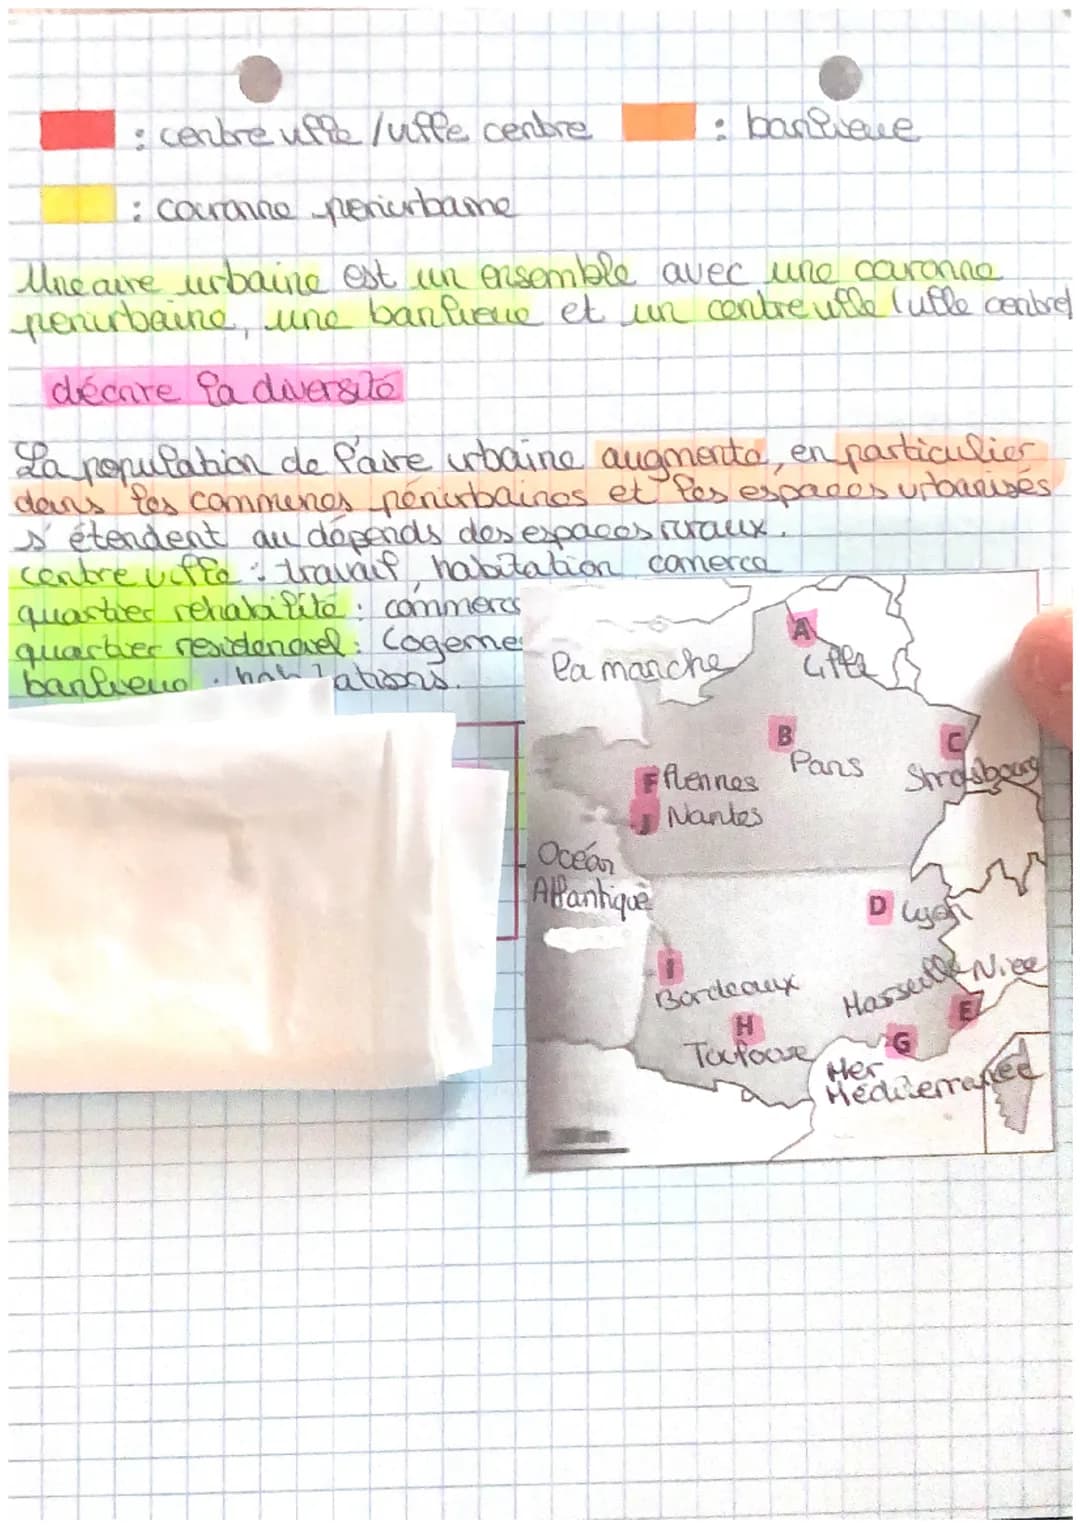 : centre ville / ville centre : banlieue
: couronne periurbaine
Une aire urbaine est un ensemble avec une couronne
periurbaine, une banlieue et un centre ville (ville centre)
décrire la diversité
La population de l'aire urbaine augmente, en particulier
dans les communes périurbaines et les espaces urbanisés
s'étendent au dépends des espaces ruraux.
centre ville : travail, habitation comerce
quartier rehabilité : commerc
quartier residenciel : Logeme
banlieue :
A
la manche
Lille
B
C
Paris
Strasbourg
F Rennes
J Nantes
Océan
Atlantique
D Lyon
I
Bordeaux
Marseille Nice
E
H
G
Toulouse
Mer
Méditerranée